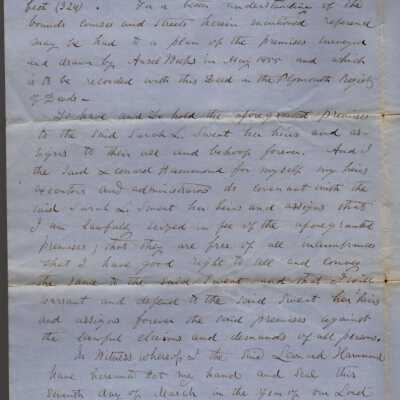 feet (324). For a better understanding of the
bounds courses and streets herein mentioned reference
may be had to a plan of the premises surveyed
and drawn by in May 1855 and which
is to be recorded with this Deed in the Plymouth Registry
of Deeds—
To have and To hold the aforegranted premises
to the said Sarah L. Swent her heirs and as-
signs to their use and behoof forever. And I
the said Leonard Hammond for myself my heirs
executors and administrators do covenant with the
said Sarah L. Swent her heirs and assigns that
I am lawfully seized in fee of the aforegranted
premises; that they are free of all incumbrances
that I have good right to sell and convey
the same to the said Swent and that I will
warrant and defend to the said Swent her heirs
and assigns forever the said premises against
the lawful claims and demands of all persons.
In Witness whereof I the said Leonard Hammond
have hereunto set my hand and seal this
seventh day of March in the year of our Lord